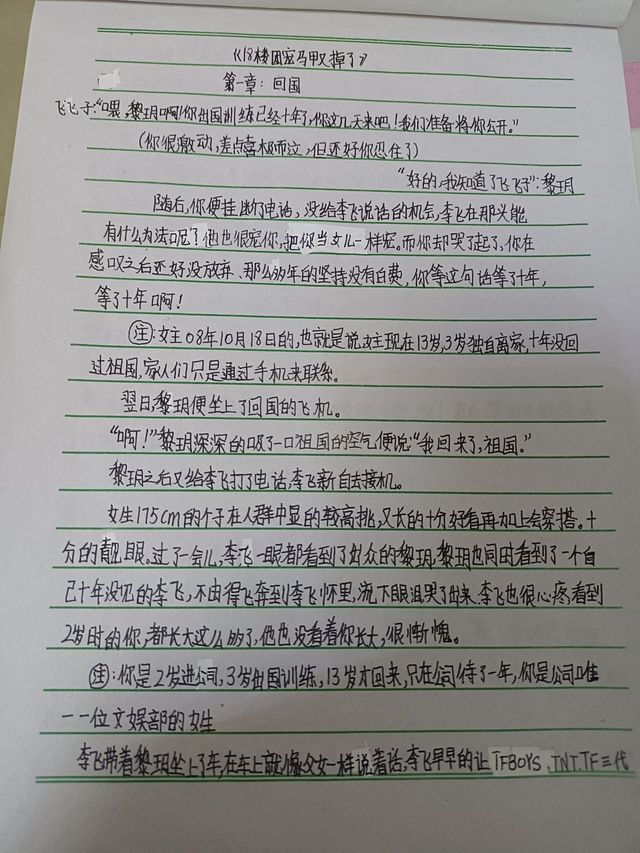 《18楼团宠马甲又掉了》
第一章：回国
飞飞子："喂，黎玥啊！你出国训练已经十年了，你这几天来吧！我们准备将你公开。"
（你很激动，差点喜极而泣，但还好你忍住了）
"好的，我知道了飞飞子"：黎玥
随后，你便挂断了电话，没给李飞说话的机会，李飞在那头能
有什么办法呢？他也很宠你，把你当女儿一样宠。而你却哭了起了，你在
感叹之后还好没放弃、那么多年的坚持没有白费，你等这句话等了十年，
等了十年啊！
注：女主08年10月18日的，也就是说女主现在13岁，3岁独自离家，十年没回
过祖国，家人们只是通过手机来联系。
翌日，黎玥便坐上了回国的飞机。
"啊！"黎玥深深的吸了一口祖国的空气便说："我回来了，祖国。"
黎玥之后又给李飞打了电话，李飞亲自去接机。
女生175cm的个子在人群中显的较高挑，又长的十分好看再加上会穿搭。十
分的靓眼。过了一会儿，李飞一眼都看到了出众的黎玥，黎玥也同时看到了一个自
己十年没见的李飞，不由得飞奔到李飞怀里，流下眼泪哭了出来，李飞也很心疼，看到
2岁时的你，都长大这么多了，他也没看着你长大，很惭愧。
注：你是2岁进公司，3岁出国训练，13岁才回来，只在公司待了一年，你是公司唯
一一位文娱部的女生
李飞带着黎玥坐上了车，在车上就像父女一样说着话，李飞早早的让TFBOYS、TNT、TF三代